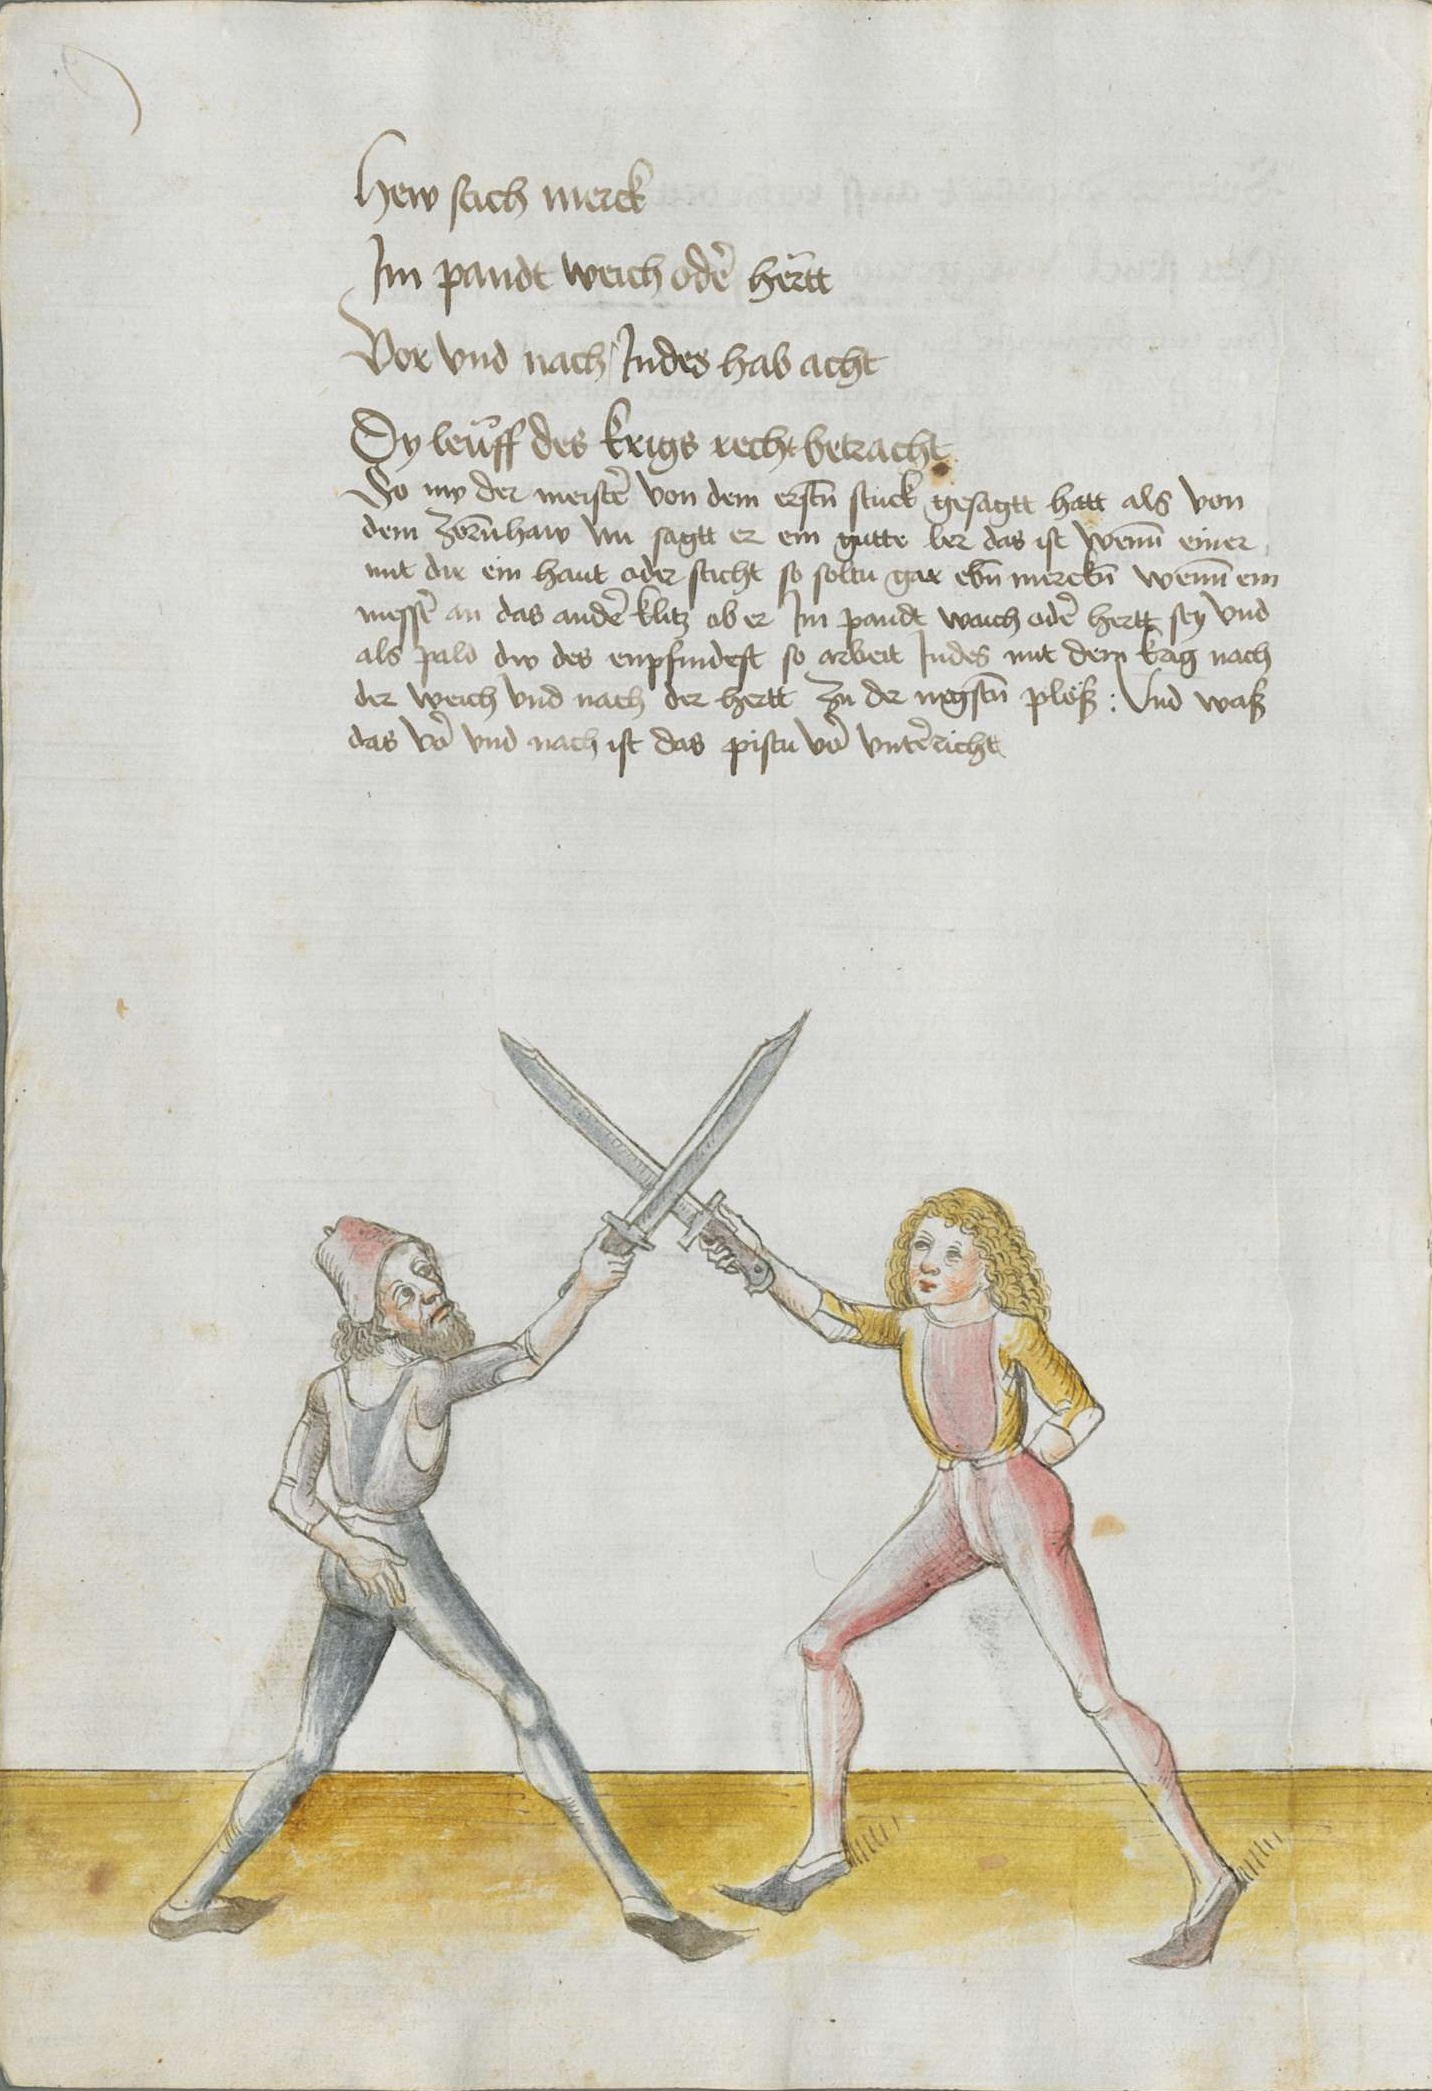 Hew stich merck
Im pandt weich oder hertt
Vor vnd nach Indes hab acht
Dy leuff des krigs recht betracht
So nw der meister von dem erstn stuck gesagtt hatt als von
dem Zornhaw Nu sagtt er ein gutte ler das ist Wenn einer
mit dir ein haut oder sticht so soltu gar ebn merckn Wenn ein
messer an das ander klitz ob er Im pandt waich oder hertt sey Vnd
als pald dw des enpfindest so arbeit Indes mit dem krig nach
der weich Vnd nach der hertt Zu der negstn plöß : Vnd waß
das vor vnd nach ist das pistu vor vnterricht